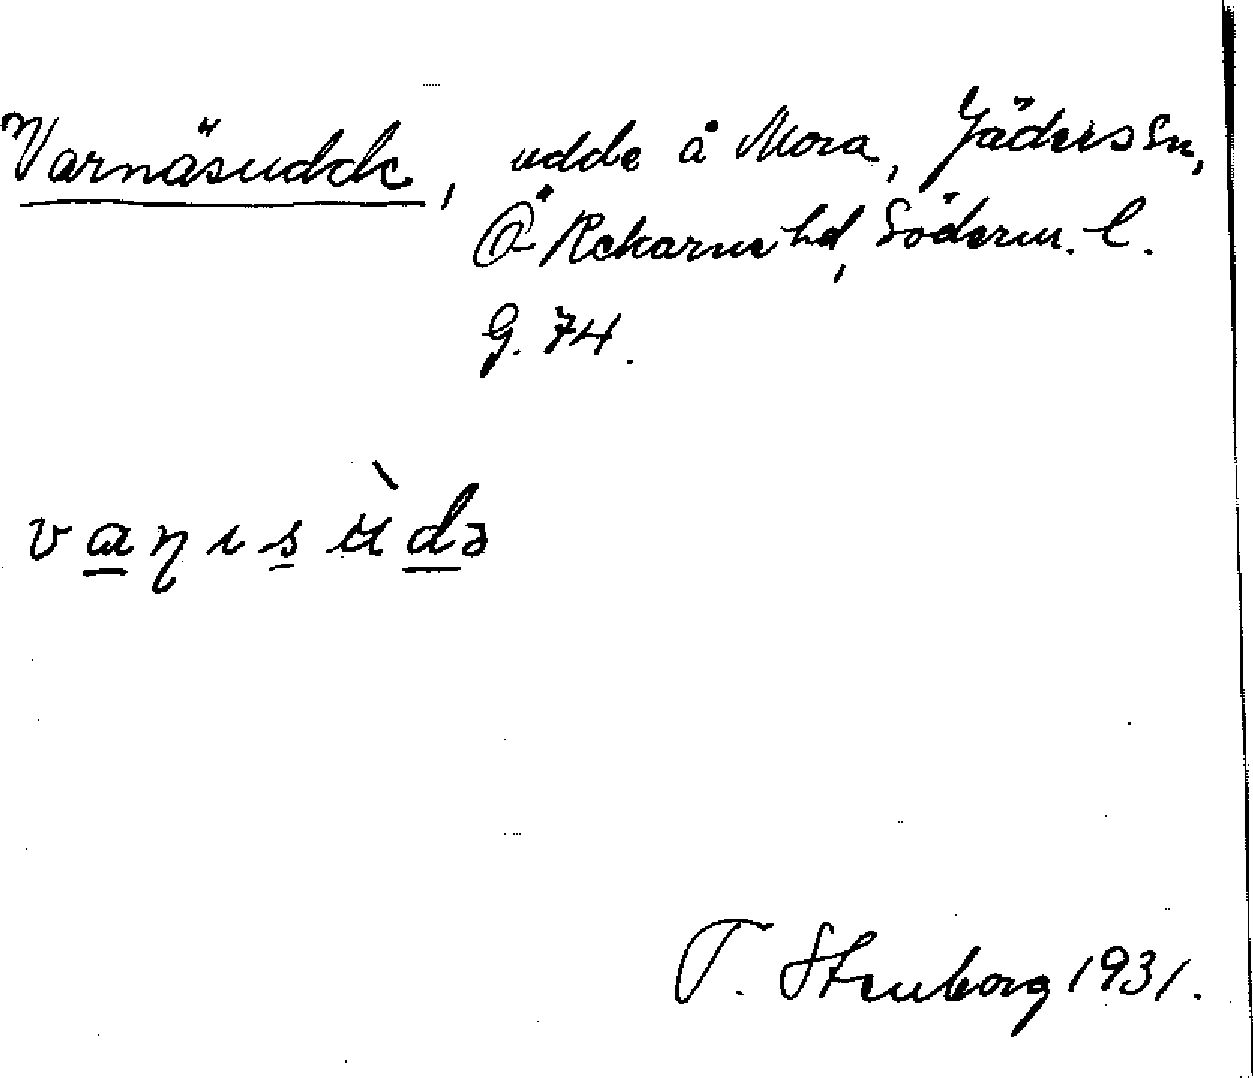 Varnäsudde, udde å Mora, Jäders sn,
Ö Rekarne hd, Söderm. l.
G. 74.
vaɳısùdə
T. Stenborg 1931.